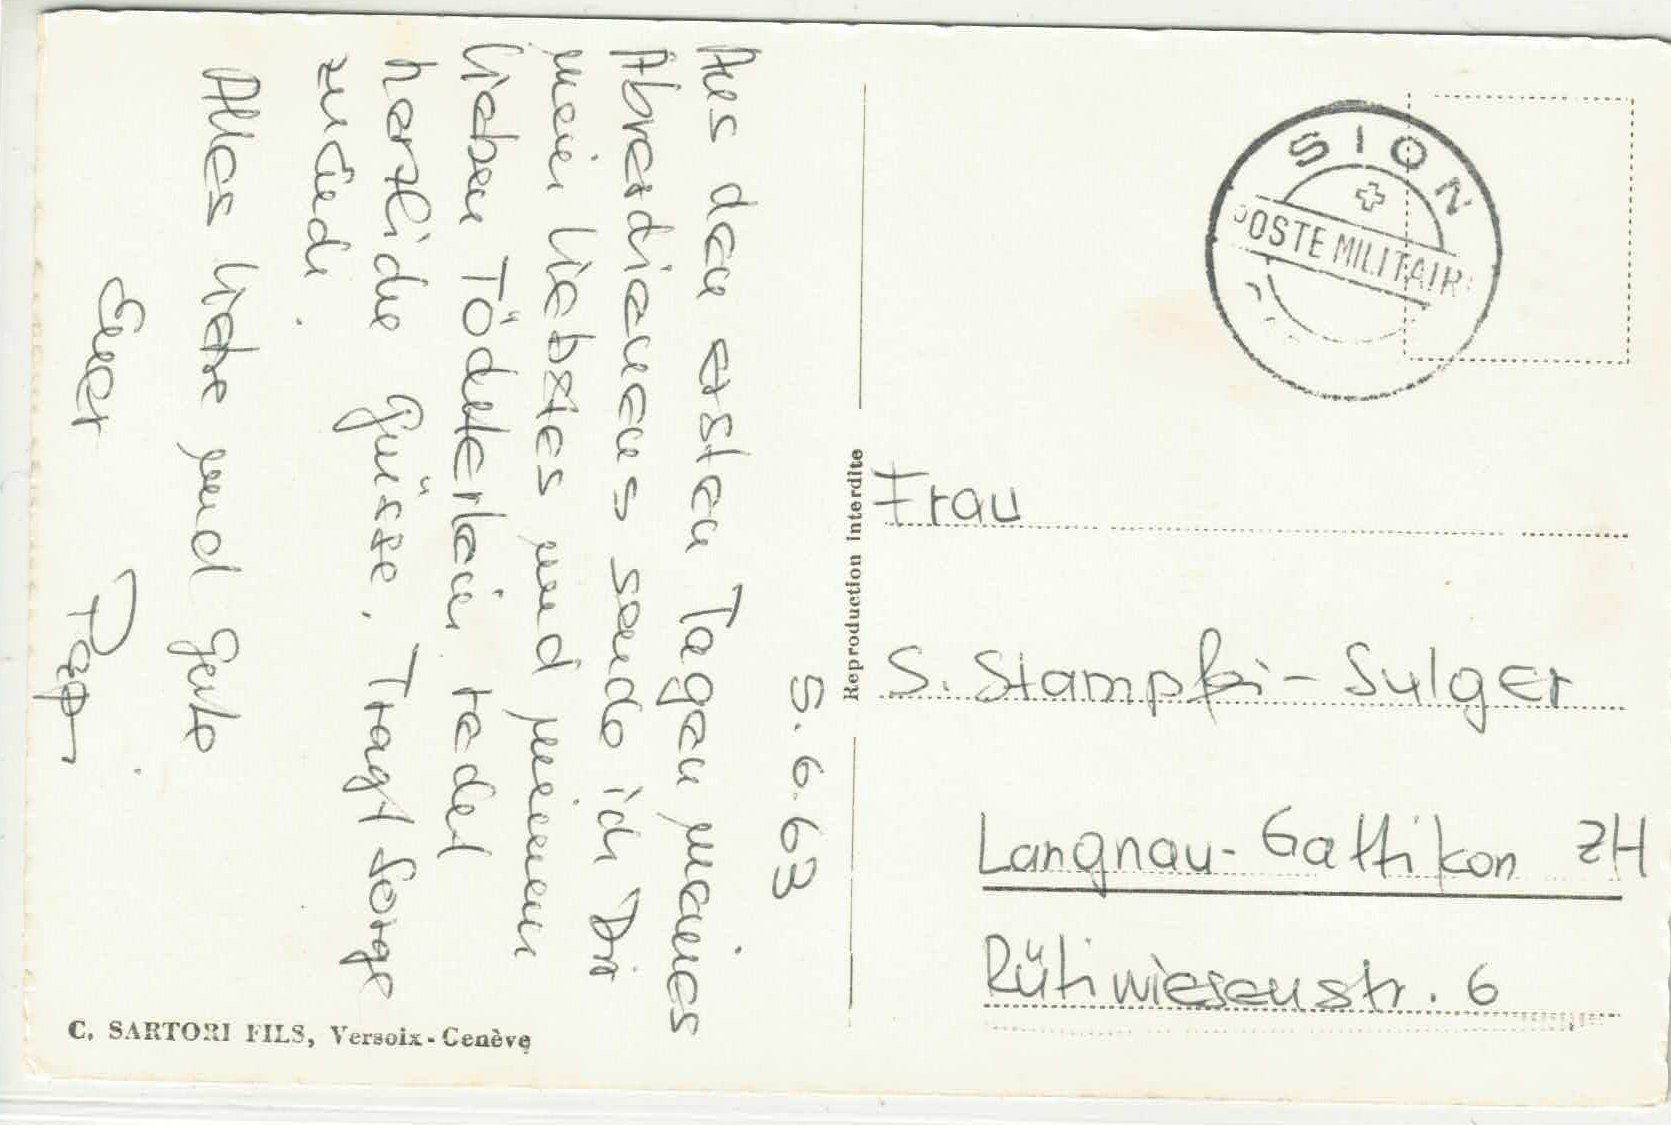 5.6.63
Aus den ersten Tagen meines
Abverdienens sende ich Dir
mein Liebstes und meinen
lieben Töchterlein recht
herzliche Grüsse. Tragt Sorge
zu Euch.
Alles Liebe und Gute
Euer Papi
C. SARTORI FILS, Versoix-Genève
Reproduction interdite
SION
POSTE MILITAIRE
Frau
S. Stampfli-Sulger
Langnau-Gattikon ZH
Rütiwiesenstr. 6